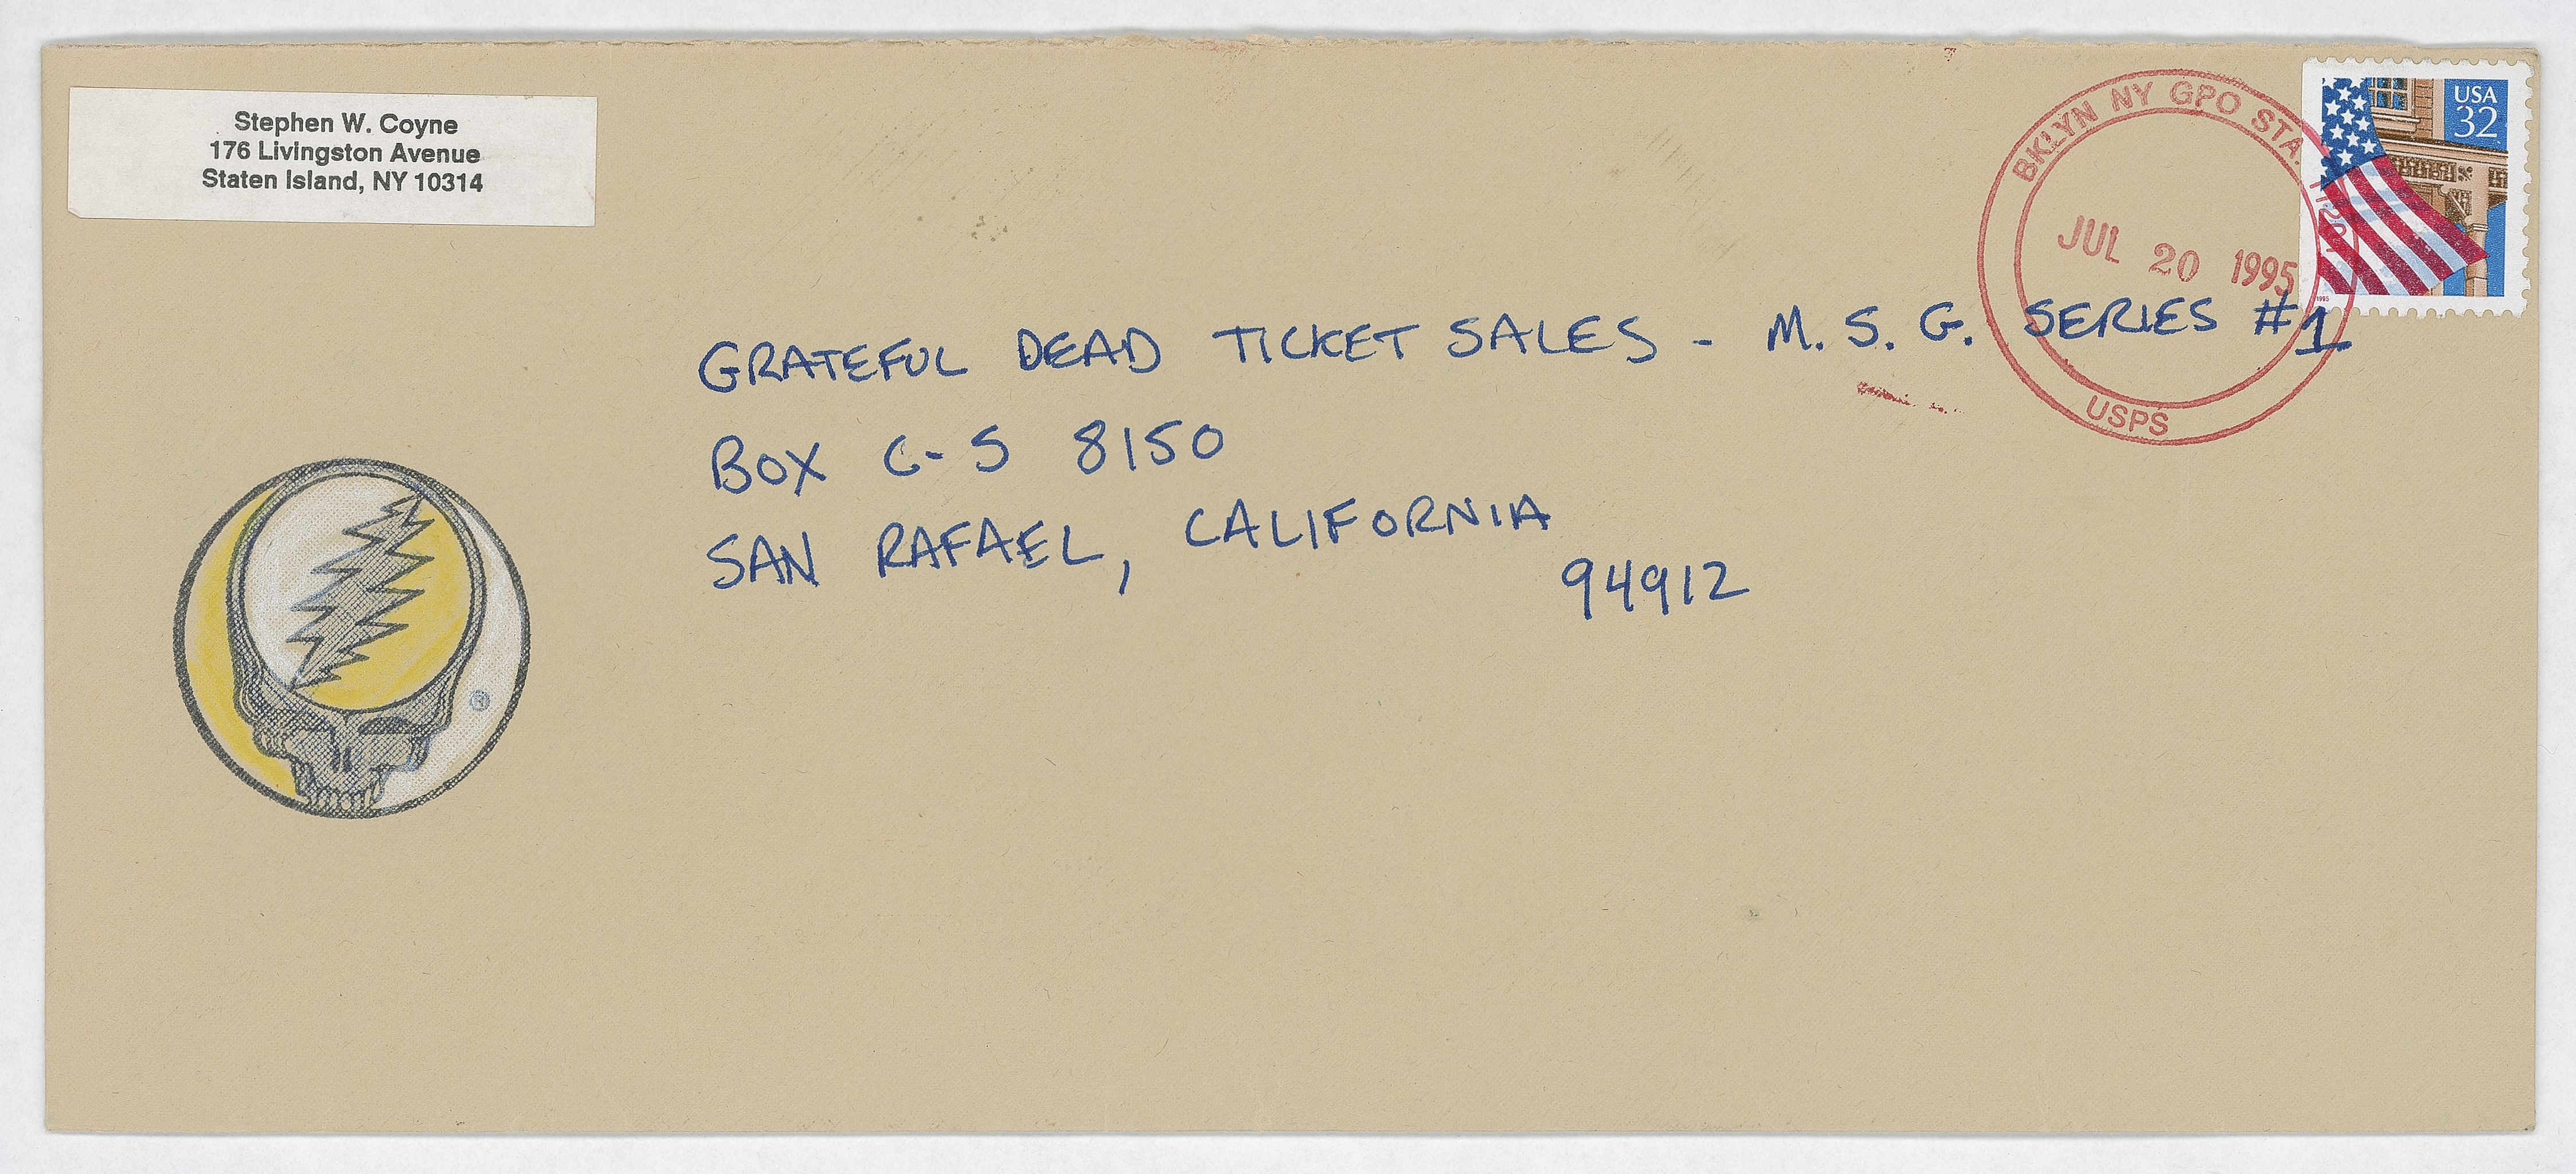 Stephen W. Coyne
176 Livingston Avenue
Staten Island, NY 10314
BKLYN NY GPO STA. 11201
JUL 20 1995
USPS
USA
32
1995
GRATEFUL DEAD TICKET SALES - M. S. G. SERIES #1
BOX C-S 8150
SAN RAFAEL, CALIFORNIA
94912
®